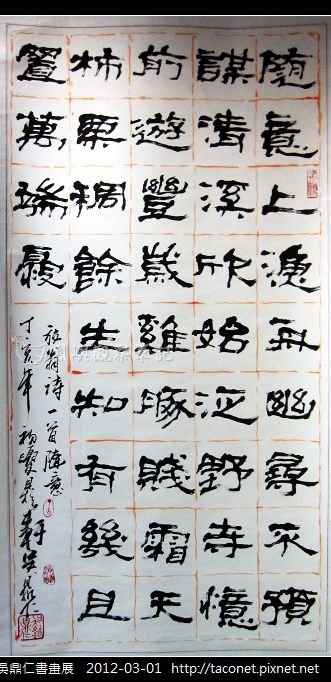 隨意上漁舟幽尋不預
謀清溪欣始泛野寺憶
前遊豐歲雞豚賤霜天
柿栗稠餘生知有幾且
置萬端憂
放翁诗一首隨意
丁亥年初夏吳鼎仁
吳鼎仁書畫展 2012-03-01 http://taconet.pixnet.net